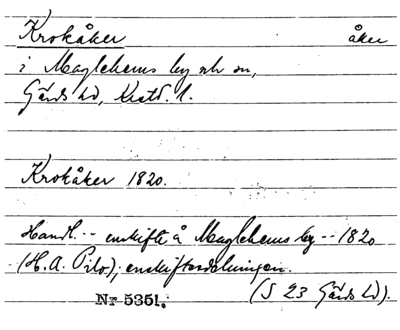 Krokåker åker
i Maglehems by och sn,
Gärds hd, Krstd. l.
Krokåker 1820.
Handl. -- enskifte å Maglehems by -- 1820
(H. A. Pilo); enskiftesdelningen.
Nr 5351. (S 23 Gärds hd).